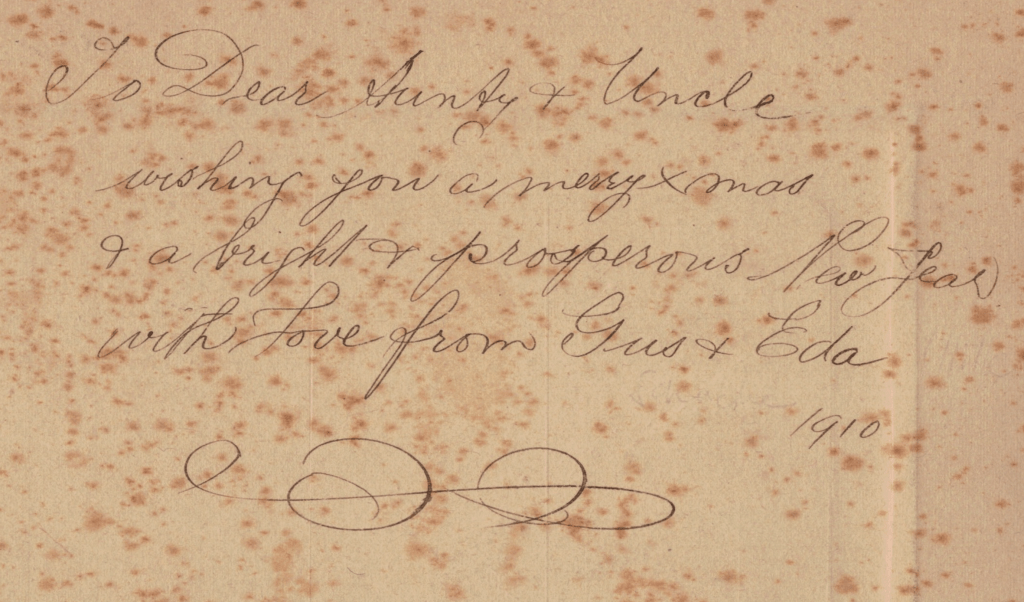 To Dear Aunty & Uncle
wishing you a merry xmas
& a bright & prosperous New Year
with Love from Gus & Eda
1910